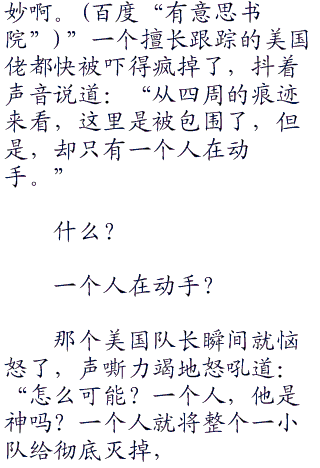 妙啊。(百度“有意思书
院”)”一个擅长跟踪的美国
佬都快被吓得疯掉了，抖着
声音说道：“从四周的痕迹
来看，这里是被包围了，但
是，却只有一个人在动
手。”
什么？
一个人在动手？
那个美国队长瞬间就恼
怒了，声嘶力竭地怒吼道：
“怎么可能？一个人，他是
神吗？一个人就将整个一小
队给彻底灭掉，